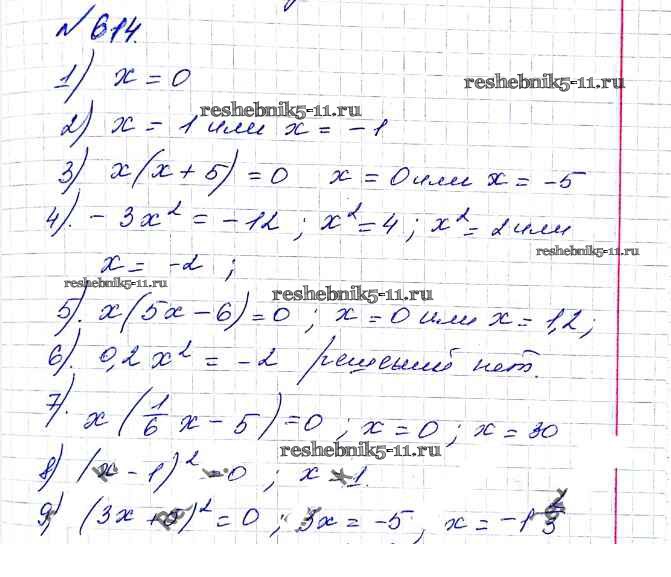 № 614.
1) x = 0
reshebnik5-11.ru
reshebnik5-11.ru
2) x = 1 или x = -1
3) x(x + 5) = 0 x = 0 или x = -5
4). - 3x² = -12 ; x² = 4 ; x² = 2 или
reshebnik5-11.ru
x = -2 ;
reshebnik5-11.ru
reshebnik5-11.ru
5). x(5x - 6) = 0 ; x = 0 или x = 1,2 ;
6). 0,2x² = -2 решений нет.
7). x(1/6 x - 5) = 0 ; x = 0 ; x = 30
reshebnik5-11.ru
8) (x - 1)² = 0 ; x = 1.
9) (3x + 5)² = 0 ; 3x = -5, x = -1 2/3